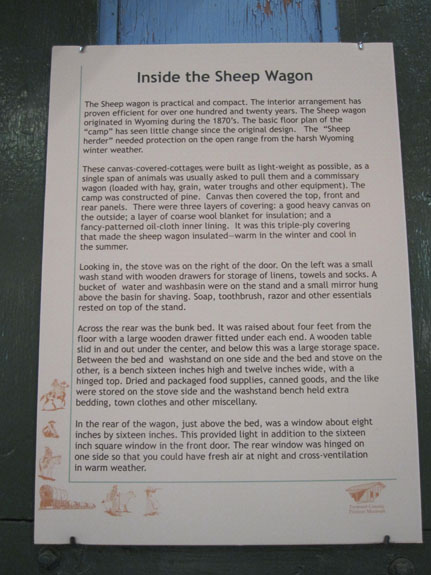 Inside the Sheep Wagon
The Sheep wagon is practical and compact. The interior arrangement has
proven efficient for over one hundred and twenty years. The Sheep wagon
originated in Wyoming during the 1870's. The basic floor plan of the
"camp" has seen little change since the original design. The "Sheep
herder" needed protection on the open range from the harsh Wyoming
winter weather.
These canvas-covered-cottages were built as light-weight as possible, as a
single span of animals was usually asked to pull them and a commissary
wagon (loaded with hay, grain, water troughs and other equipment). The
camp was constructed of pine. Canvas then covered the top, front and
rear panels. There were three layers of covering: a good heavy canvas on
the outside; a layer of coarse wool blanket for insulation; and a
fancy-patterned oil-cloth inner lining. It was this triple-ply covering
that made the sheep wagon insulated—warm in the winter and cool in
the summer.
Looking in, the stove was on the right of the door. On the left was a small
wash stand with wooden drawers for storage of linens, towels and socks. A
bucket of water and washbasin were on the stand and a small mirror hung
above the basin for shaving. Soap, toothbrush, razor and other essentials
rested on top of the stand.
Across the rear was the bunk bed. It was raised about four feet from the
floor with a large wooden drawer fitted under each end. A wooden table
slid in and out under the center, and below this was a large storage space.
Between the bed and washstand on one side and the bed and stove on the
other, is a bench sixteen inches high and twelve inches wide, with a
hinged top. Dried and packaged food supplies, canned goods, and the like
were stored on the stove side and the washstand bench held extra
bedding, town clothes and other miscellany.
In the rear of the wagon, just above the bed, was a window about eight
inches by sixteen inches. This provided light in addition to the sixteen
inch square window in the front door. The rear window was hinged on
one side so that you could have fresh air at night and cross-ventilation
in warm weather.